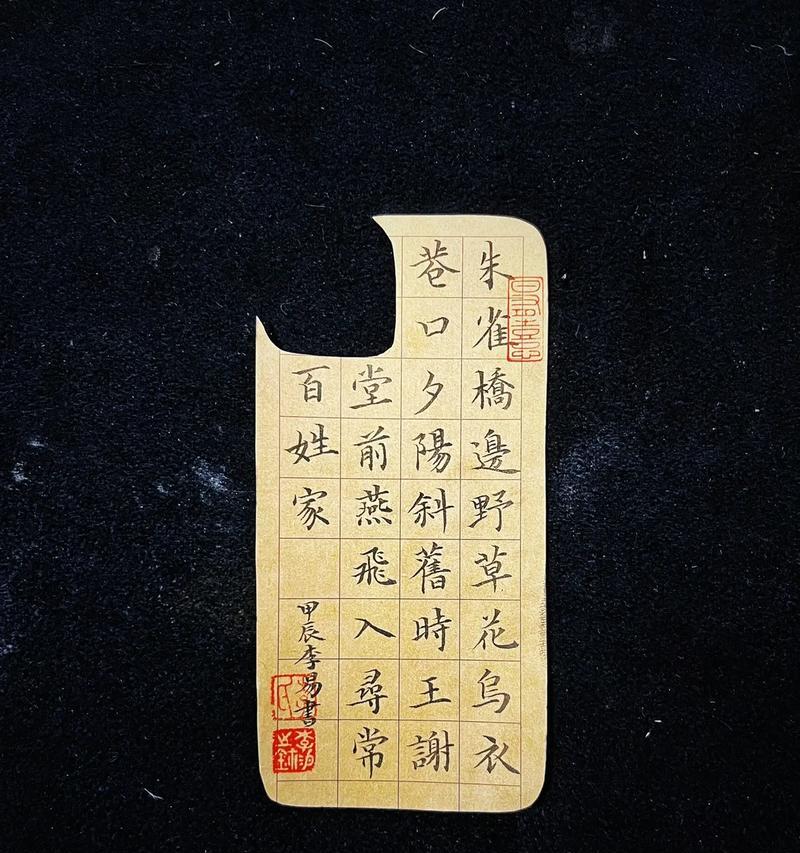 朱雀橋邊野草花烏衣
巷口夕陽斜舊時王謝
堂前燕飛入尋常
百姓家
甲辰李易書